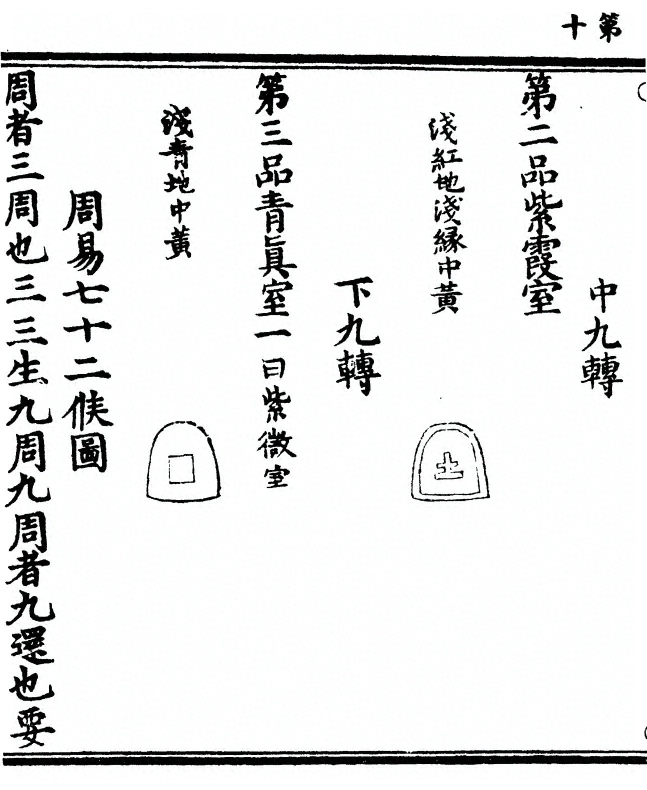 第十
中九轉
第二品紫霞室
淺紅地淺緣中黃
土
下九轉
第三品青眞室一曰紫微室
淺青地中黃
周易七十二候圖
周者三周也三三生九周九周者九還也要